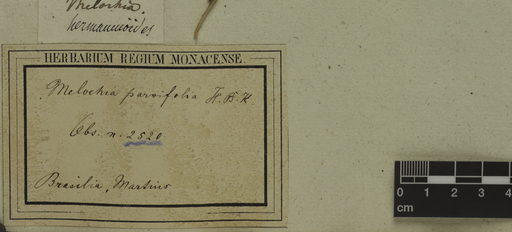 Melochia.
hermannioides
HERBARIUM REGIUM MONACENSE.
Melochia parvifolia H.B.K
Obs. n. 2520
Brasilia, Martius
0 1 2 3 4
cm